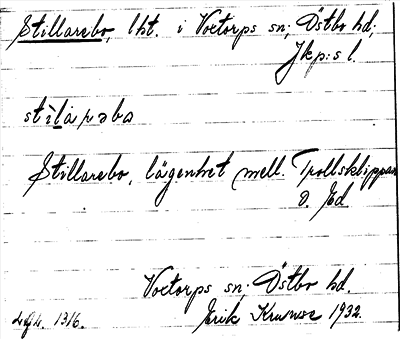 Stillarebo, lht. i Voxtorps sn; Östbo hd;
Jkp:s l.
Stillarebo, lägenhet mell. Trollsklippan
o. Ed
Voxtorps sn; Östbo hd.
Erik 1932.